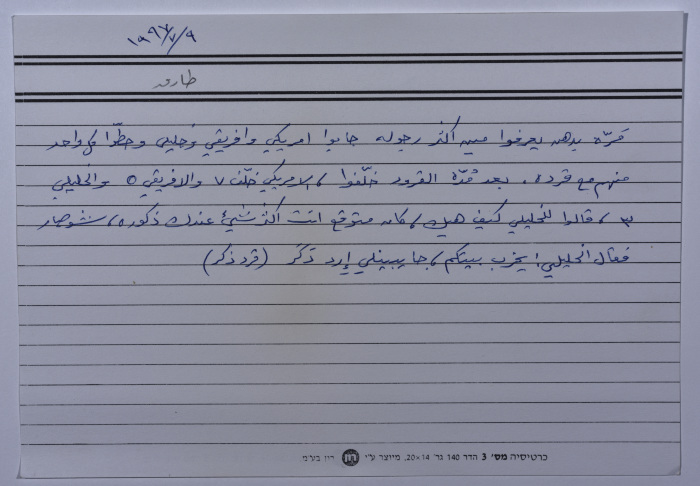 ١٩٩٧/٧/٩
طارق
مَرّه بدهن يعرفوا مين أكثر رجوله جابوا امريكي وافريقي وخليلي وحطّوا كل واحد
منهم مع قرده. بعد مُدّة القرود خلّفوا، الامريكي خلّف ٧ والافريقي ٥ والخليلي
٣، قالوا للخليلي كيف هيك، كان متوقع انت أكثر شيء عندك ذكوره، شو صار
فقال الخليلي: يخرب بيتكم، جايبينلي إرد ذَكَر (قرد ذكر)
כרטיסיה מס' 3 הדר 140 גר' 14×20, מיוצר ע"י רוז בע"מ